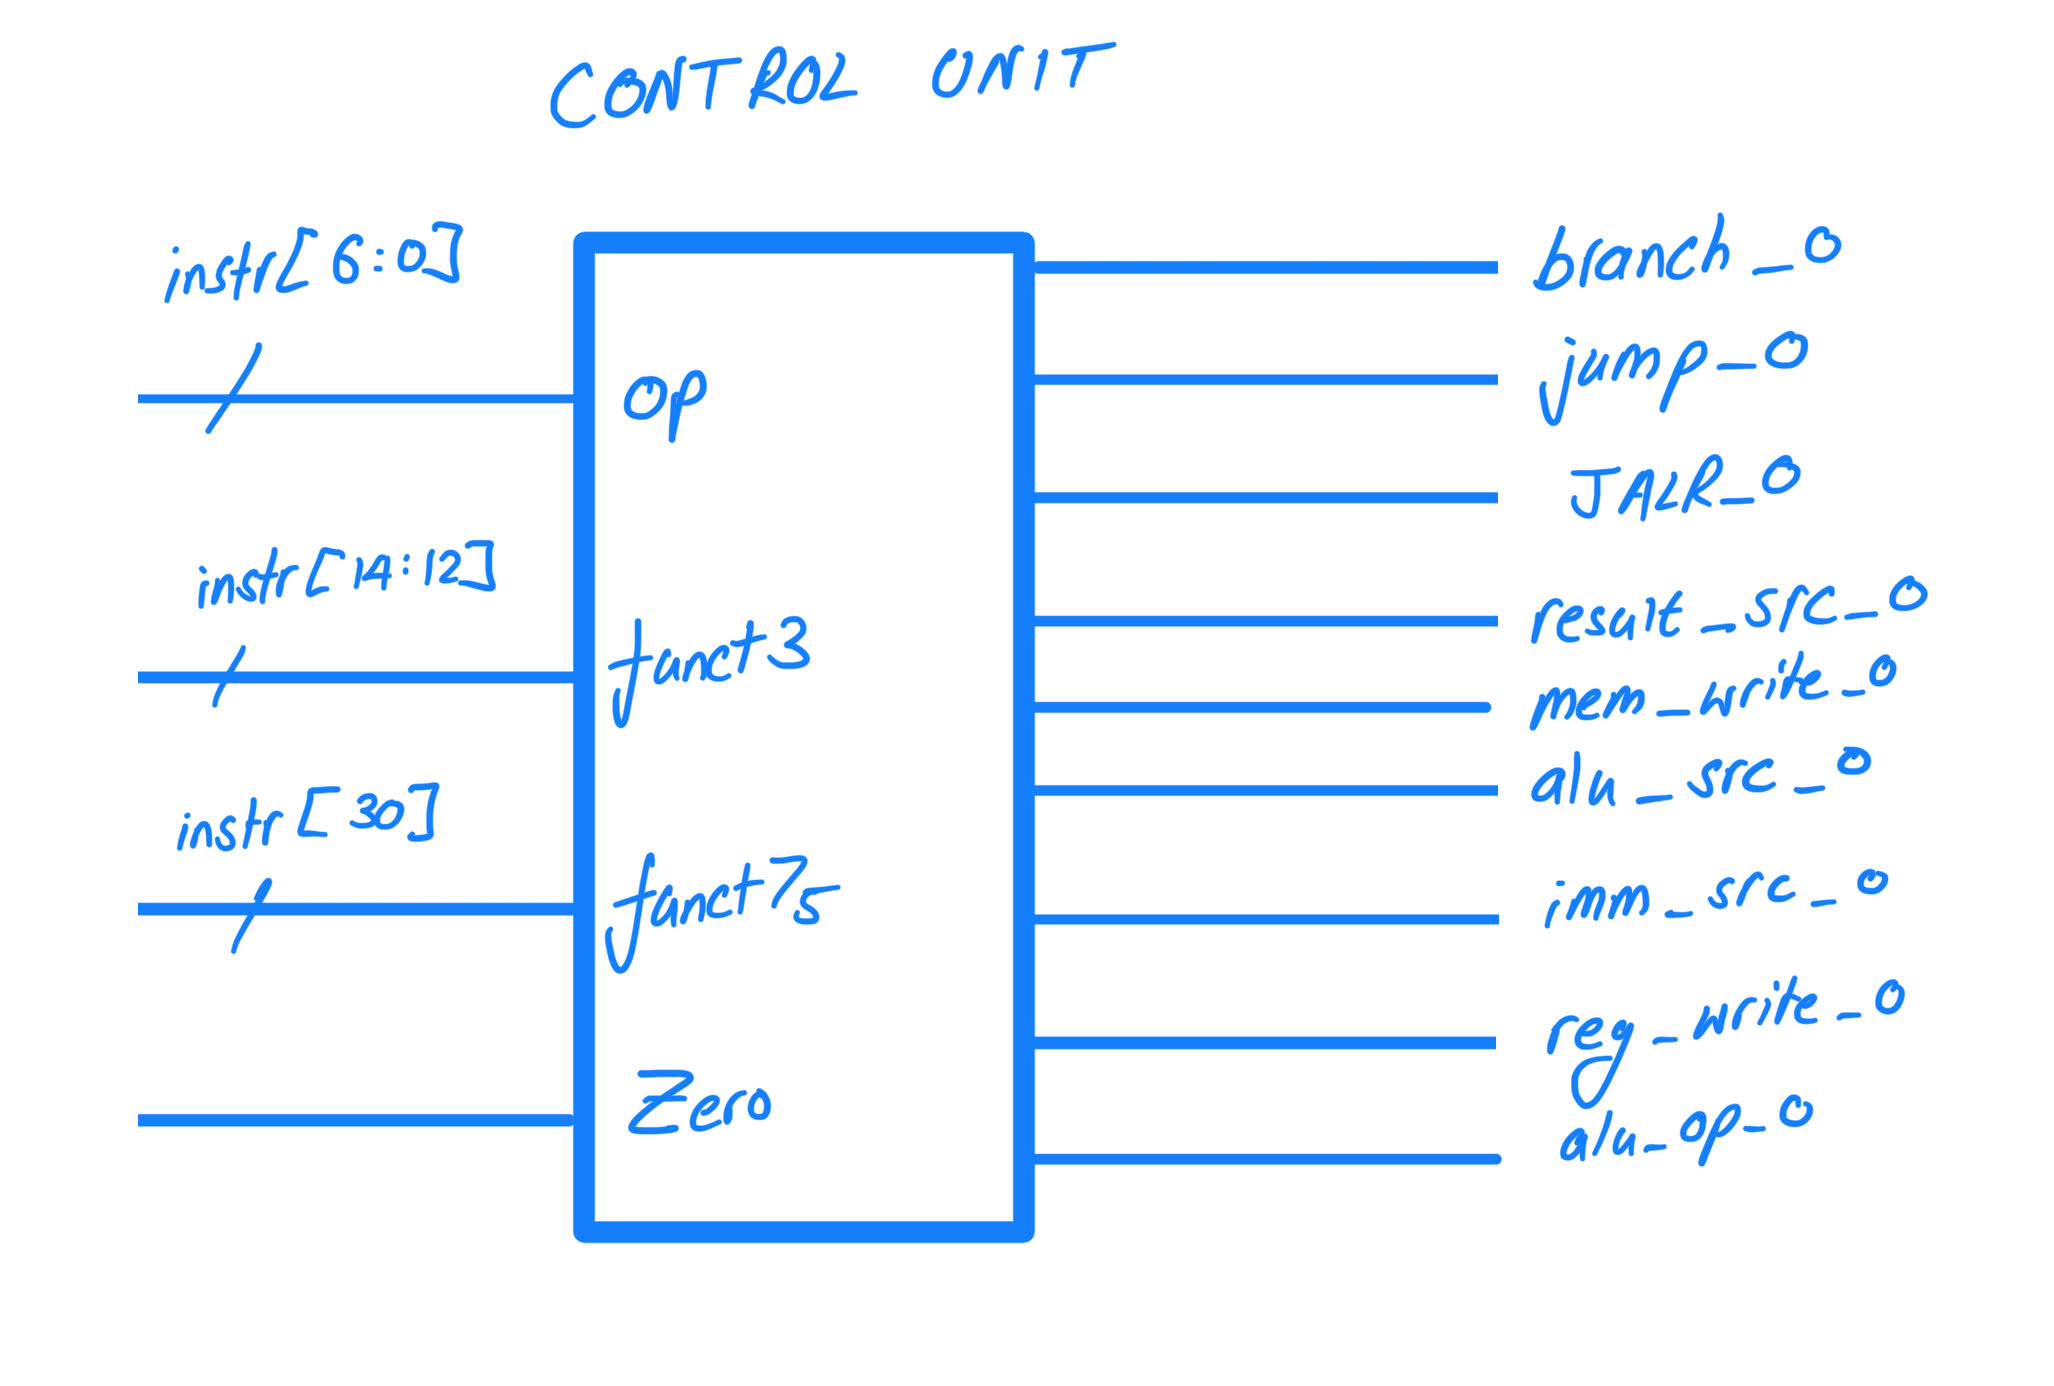 CONTROL UNIT
instr[6:0]
op
instr[14:12]
funct3
instr[30]
funct75
Zero
branch_o
jump_o
JALR_o
result_src_o
mem_write_o
alu_src_o
imm_src_o
reg_write_o
alu_op_o